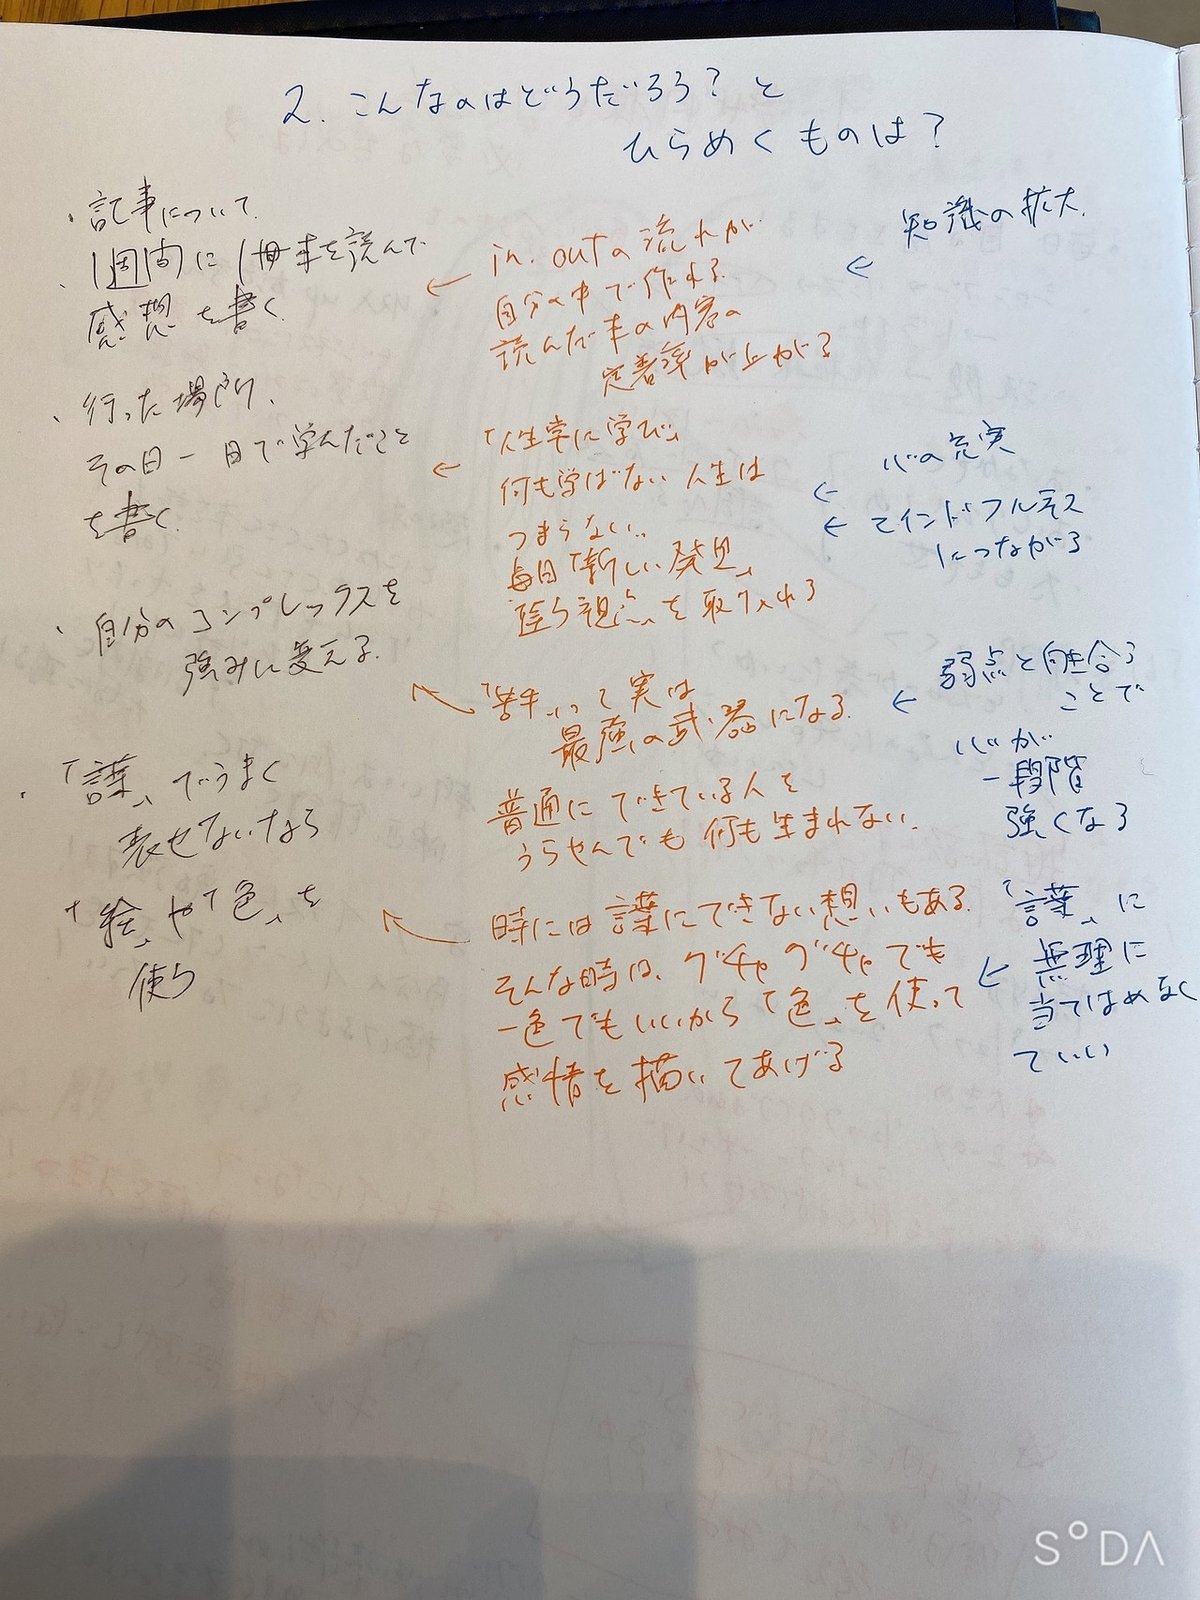 2. こんなのはどうだろう?と
ひらめくものは?
・記事について
・1週間に1冊本を読んで
感想を書く
in. outの流れが
自分の中で作れる
読んだ本の内容の
定着率が上がる
知識の拡大
・行った場所、
その日一日で学んだこと
を書く
「人生常に学び」
何も学ばない人生は
つまらない。
毎日「新しい発見」
違う視点を取り入れる
心の充実
マインドフルネス
につながる
・自分のコンプレックスを
強みに変える
「苦手」って実は
最強の武器になる
普通にできている人を
うらやんでも何も生まれない。
弱点と向き合う
ことで
心が
一段階
強くなる
・「言葉」でうまく
表せないなら
「絵」や「色」を
使う
時には言葉にできない想いもある
そんな時は、グチャグチャでも
一色でもいいから「色」を使って
感情を描いてあげる
「言葉」に
無理に
当てはめなく
ていい
SODA